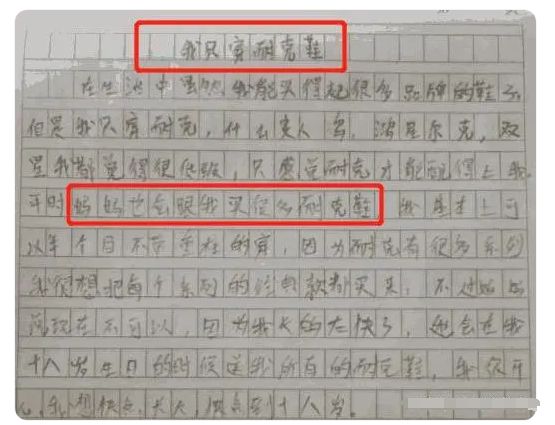 我只穿耐克鞋
在生活中虽然我能买得起很多品牌的鞋子
但是我只穿耐克，什么贵人鸟，鸿星尔克，双
星我都觉得很低级，只感觉耐克才能配得上我
平时妈妈也会跟我买很多耐克鞋 我基本上可
以半个月不带重样的穿，因为耐克有很多系列
我很想把每个系列的经典款都买来，不过妈妈
说现在不可以，因为我长的太快了，她会在我
十八岁生日的时候送我所有的耐克鞋，我很开
心，我想快点长大，快点到十八岁。